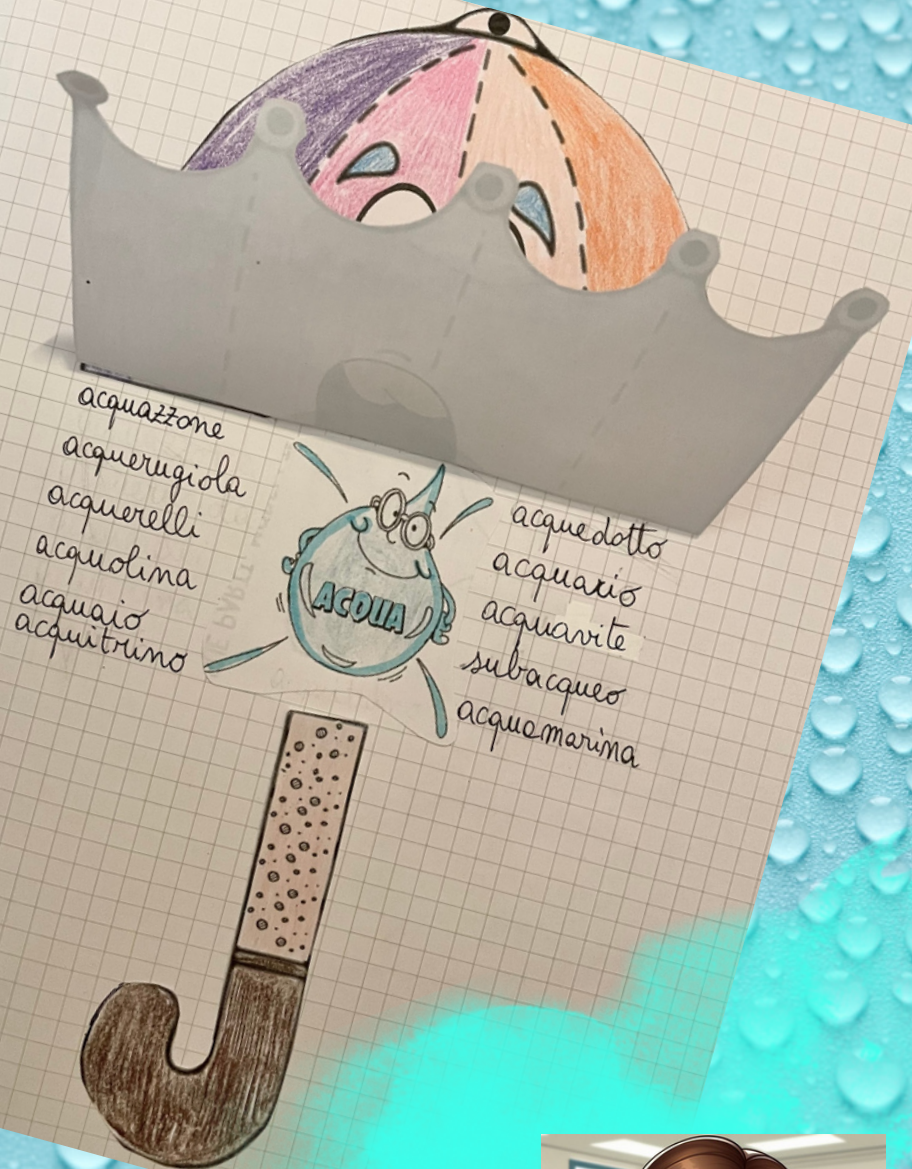 acquazzone
acquerugiola
acquerelli
acquolina
acquaio
acquitrino
ACQUA
acquedotto
acquario
acquavite
subacqueo
acquamarina